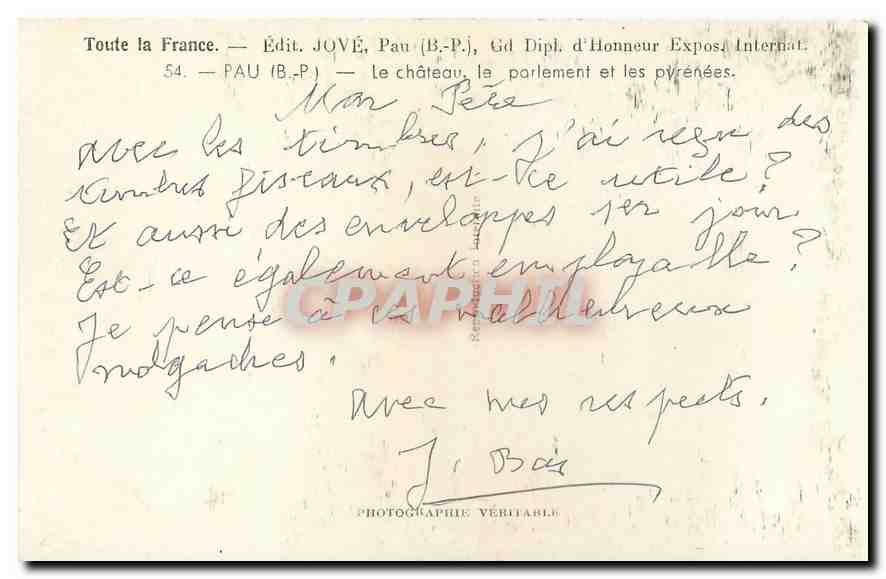 Toute la France. — Édit. JOVÉ, Pau (B.-P.), Gd Dipl. d'Honneur Expos. Internat.
54. — PAU (B.-P.) — Le château, le parlement et les pyrénées.
Mon Père
avec les timbres, j'ai reçu des
timbres fiscaux, est-ce utile?
Et aussi des enveloppes 1er jour
Est-ce également employable?
Je pense à ces malheureux
malgaches.
avec mes respects.
J. Bas
PHOTOGRAPHIE VÉRITABLE
Reproduction interdite
CPAPHIL